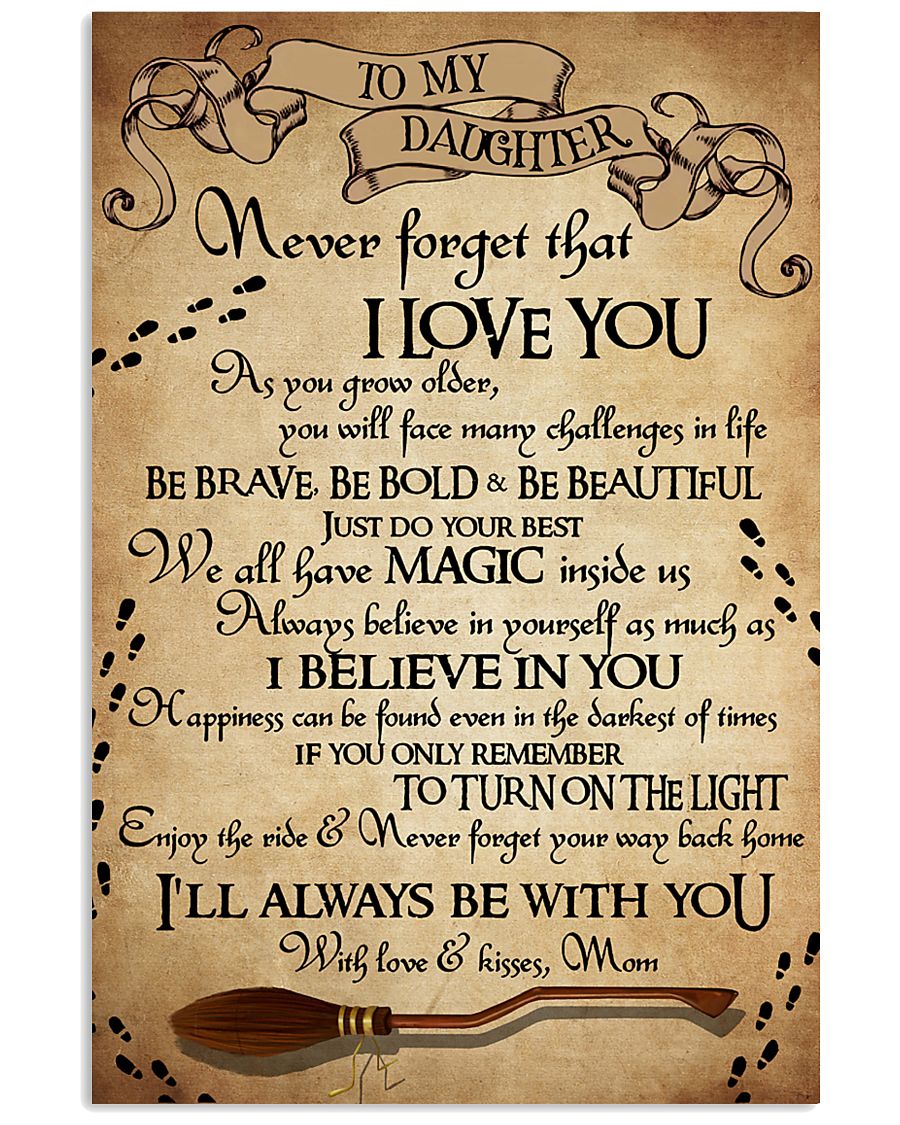 TO MY
DAUGHTER
Never forget that
I LOVE YOU
As you grow older,
you will face many challenges in life
BE BRAVE, BE BOLD & BE BEAUTIFUL
JUST DO YOUR BEST
We all have MAGIC inside us
Always believe in yourself as much as
I BELIEVE IN YOU
Happiness can be found even in the darkest of times
IF YOU ONLY REMEMBER
TO TURN ON THE LIGHT
Enjoy the ride & Never forget your way back home
I'LL ALWAYS BE WITH YOU
With love & kisses, Mom